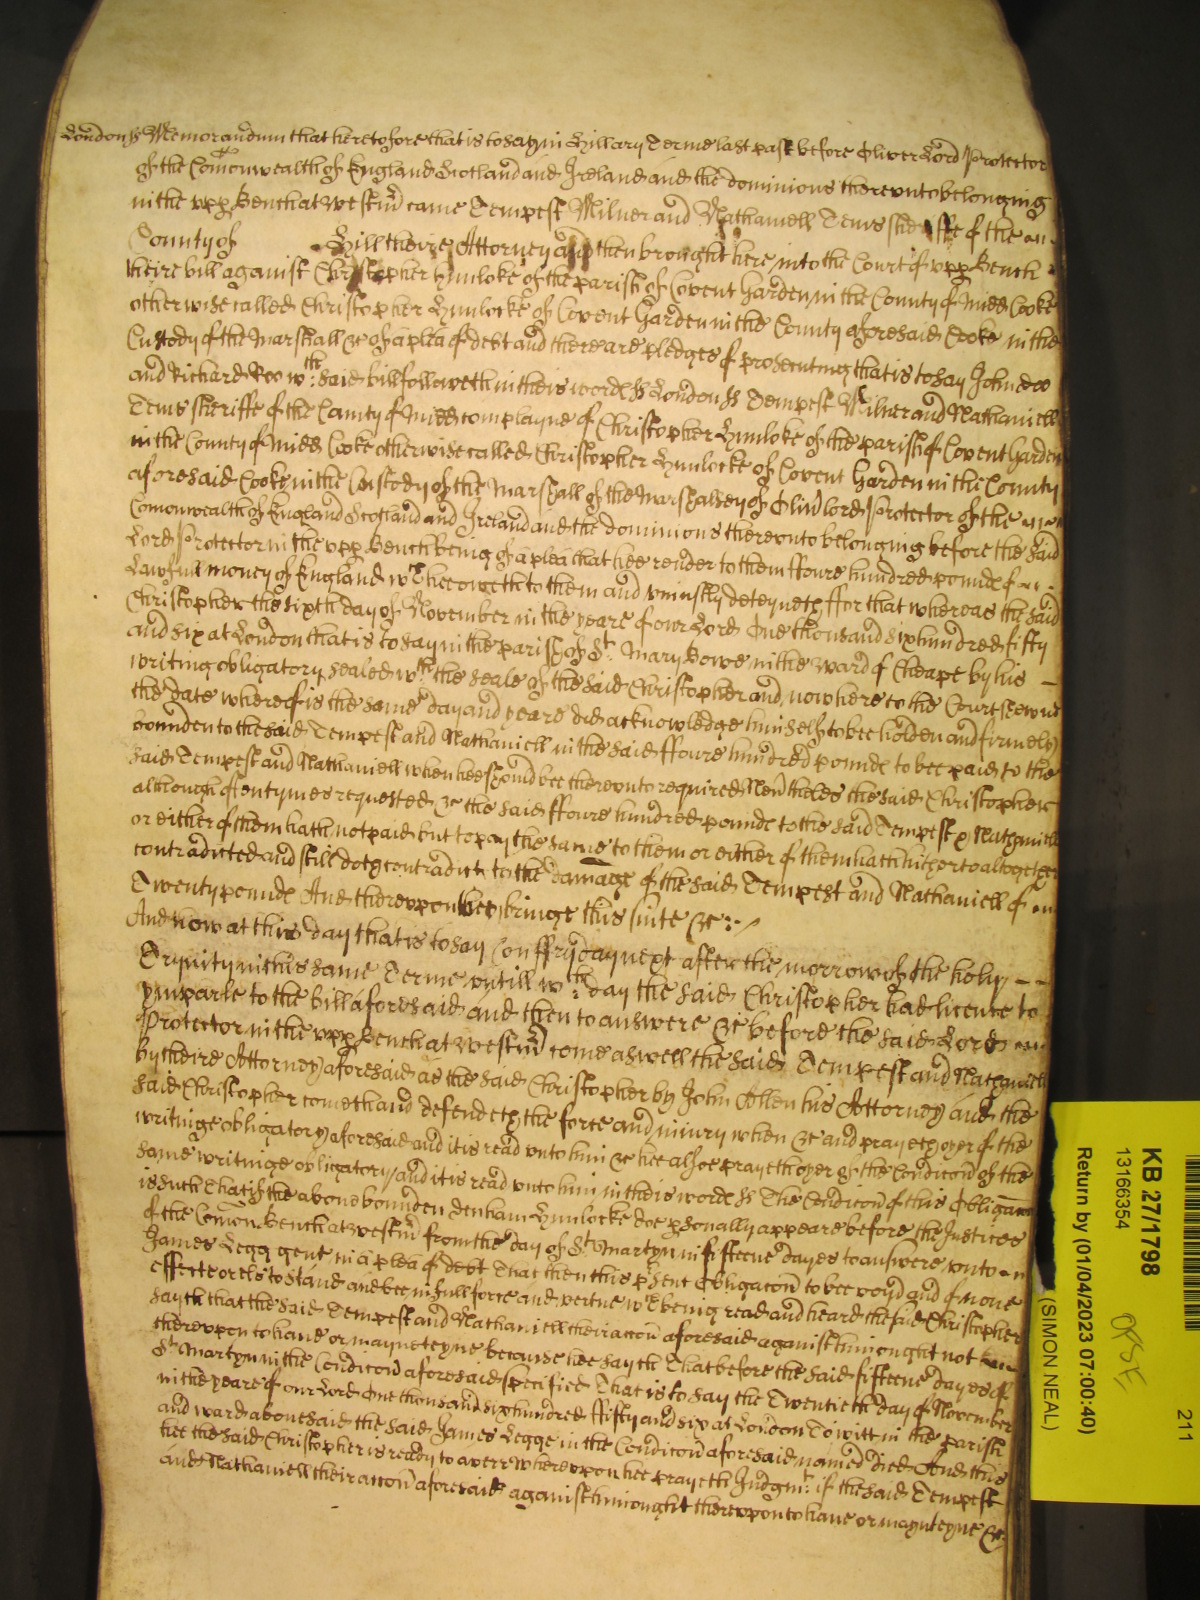 London ss Memorandum that heretofore that is to say in Hillary Terme last past before Oliver Lord Protector
of the Comonwealth of England Scotland and Ireland and the dominions thereunto belonging
in the upp Bench at Westm̃ came Tempest Milner and Nathaniell Tems sheriffe of the
County of Hill theire Attorney and then brought here into the Court of upp Bench
theire bill against Christopher Hunloke of the parish of Covent Garden in the County of Midd Cooke
otherwise called Christopher Hunlocke of Covent Garden in the County aforesaid Cooke in the
Custody of the Marshall &c of a plea of debt and there are pledges of prosecuting that is to say John doo
and Richard Roo wth: said bill followeth in theis words ss London ss Tempest Milner and Nathaniell
Tems sheriffe of the County of Midd complayne of Christopher Hunloke of the parish of Covent Garden
in the County of Midd Cooke otherwise called Christopher Hunlocke of Covent Garden in the County
aforesaid Cooke in the Custody of the Marshall of the Marshalsey of Oliver lord Protector of the
Comonwealth of England Scotland and Ireland and the dominions thereunto belonging before the said
Lord Protector in the upp Bench being of a plea that hee render to them ffoure hundred pounds of
Lawfull money of England wch hee oweth to them and uniustly deteyneth ffor that whereas the said
Christopher the sixth day of November in the yeare of our Lord One thousand six hundred fifty
and six at London that is to say in the parish of St: Mary Bowe in the ward of Cheape by his
writing obligatory sealed wth: the seale of the said Christopher and now here to the Court shewne
the date whereof is the same day and yeare did acknowledge himselfe to bee holden and firmely
bounden to the said Tempest and Nathaniell in the said ffoure hundred pounds to bee paid to the
said Tempest and Nathaniell when hee should bee thereunto required Neṽtheles the said Christopher
although oftentymes requested &c the said ffoure hundred pounds to the said Tempest & Nathaniell
or either of them hath not paid but to pay the same to them or either of them hath hitherto altogether
contradicted and still doth contradict to the damage of the said Tempest and Nathaniell of
Twenty pounds And thereupon they bringe this suite &c :~/
And now at this day that is to say on ffryday next after the morrow of the holy
Trynity in this same Terme untill wch: day the said Christopher had licence to
ymparle to the bill aforesaid and then to answere &c before the said Lord
Protector in the upp Bench at Westm̃ come aswell the said Tempest and Nathaniell
by theire Attorney aforesaid as the said Christopher by John Allen his Attorney and the
said Christopher cometh and defendeth the force and iniury when &c and prayeth oyer of the
writinge obligatory aforesaid and it is read unto him &c hee alsoe prayeth oyer of the Condicoñ of the
same writinge obligatory and it is read unto him in theis words ss The Condicoñ of this Obligacoñ
is such That if the above bounden Denham Hunlocke doe psonally appeare before the Justices
of the Comon Bench at Westm̃ from the day of St: Martyn in fifteene dayes to answere unto
James Legg gent in a plea of debt That then this psent Obligacoñ to bee voyd and of none
effecte or els to stand and bee in full force and vertue wch being read and heard the said Christopher
sayth that the said Tempest and Nathaniell their accoñ aforesaid against him ought not
thereupon to have or maynteyne because hee sayth That before the said fifteene dayes of
St: Martyn in the Condicoñ aforesaid specified That is to say the Twentieth day of November
in the yeare of our Lord One thousand six hundred fifty and six at London To witt in the parish
and ward abovesaid the said James Legge in the Condicoñ aforesaid named died And this
hee the said Christopher is ready to averr whereupon hee prayeth Judgmt: if the said Tempest
and Nathaniell their accoñ aforesaid against him ought thereupon to have or maynteyne &c
KB 27/1798
13166354
Return by (01/04/2023 07:00:40)
(SIMON NEAL)
211